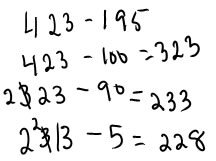 423 - 195
423 - 100 = 323
2 323 - 90 = 233
2 2 3 13 - 5 = 228